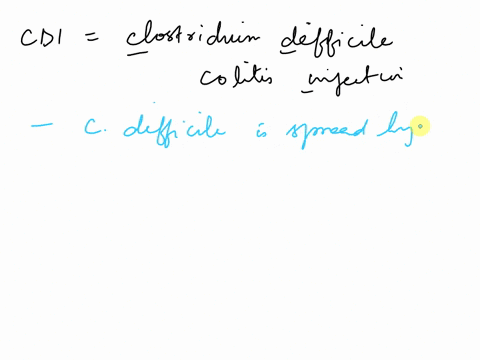 CDI = clostridium defficile
colitis infection
— C. defficile is spread by